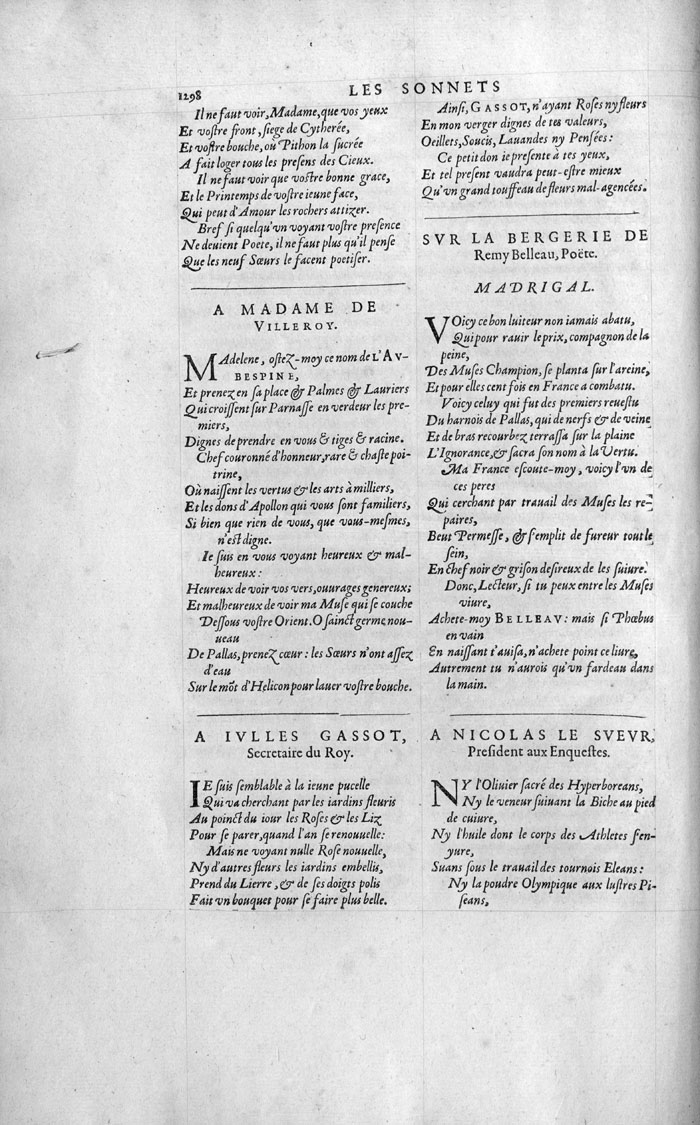 1298
LES SONNETS
Il ne faut voir, Madame, que vos yeux
Et vostre front, siege de Cytherée,
Et vostre bouche, où Pithon la sucrée
A fait loger tous les presens des Cieux.
Il ne faut voir que vostre bonne grace,
Et le Printemps de vostre ieune face,
Qui peut d'Amour les rochers attizer.
Bref si quelqu'vn voyant vostre presence
Ne deuient Poete, il ne faut plus qu'il pense
Que les neuf Sœurs le facent poëtiser.
A MADAME DE
VILLEROY.
MAdelene, ostez-moy ce nom de L'AV-
BESPINE,
Et prenez en sa place & Palmes & Lauriers
Qui croissent sur Parnasse en verdeur les pre-
miers,
Dignes de prendre en vous & tiges & racine.
Chef couronné d'honneur, rare & chaste poi-
trine,
Où naissent les vertus & les arts à milliers,
Et les dons d'Apollon qui vous sont familiers,
Si bien que rien de vous, que vous-mesmes,
n'est digne.
Ie suis en vous voyant heureux & mal-
heureux:
Heureux de voir vos vers, ouurages genereux;
Et malheureux de voir ma Muse qui se couche
Dessous vostre Orient. O sainct germe nou-
ueau
De Pallas, prenez cœur: les Sœurs n'ont assez
d'eau
Sur le mõt d'Helicon pour lauer vostre bouche.
A IVLLES GASSOT,
Secretaire du Roy.
IE suis semblable à la ieune pucelle
Qui va cherchant par les iardins fleuris
Au poinct du iour les Roses & les Liz
Pour se parer, quand l'an se renouuelle:
Mais ne voyant nulle Rose nouuelle,
Ny d'autres fleurs les iardins embellis,
Prend du Lierre, & de ses doigts polis
Fait vn bouquet pour se faire plus belle.
Ainsi, GASSOT, n'ayant Roses ny fleurs
En mon verger dignes de tes valeurs,
Oeillets, Soucis, Lauandes ny Pensées:
Ce petit don ie presente à tes yeux,
Et tel present vaudra peut-estre mieux
Qu'vn grand touffeau de fleurs mal-agencées.
SVR LA BERGERIE DE
Remy Belleau, Poëte.
MADRIGAL.
VOicy ce bon luiteur non iamais abatu,
Qui pour rauir le prix, compagnon de la
peine,
Des Muses Champion, se planta sur l'areine,
Et pour elles cent fois en France a combatu.
Voicy celuy qui fut des premiers reuestu
Du harnois de Pallas, qui de nerfs & de veine
Et de bras recourbez terrassa sur la plaine
L'Ignorance, & sacra son nom à la Vertu.
Ma France escoute-moy, voicy l'vn de
ces peres
Qui cerchant par trauail des Muses les re-
paires,
Beut Permesse, & s'emplit de fureur tout le
sein,
En chef noir & grison desireux de les suiure.
Donc, Lecteur, si tu peux entre les Muses
viure,
Achete-moy BELLEAV: mais si Phœbus
en vain
En naissant t'auisa, n'achete point ce liure,
Autrement tu n'aurois qu'vn fardeau dans
la main.
A NICOLAS LE SVEVR,
President aux Enquestes.
NY l'Oliuier sacré des Hyperboreans,
Ny le veneur suiuant la Biche au pied
de cuiure,
Ny l'huile dont le corps des Athletes s'en-
yure,
Suans sous le trauail des tournois Eleans:
Ny la poudre Olympique aux lustres Pi-
seans,